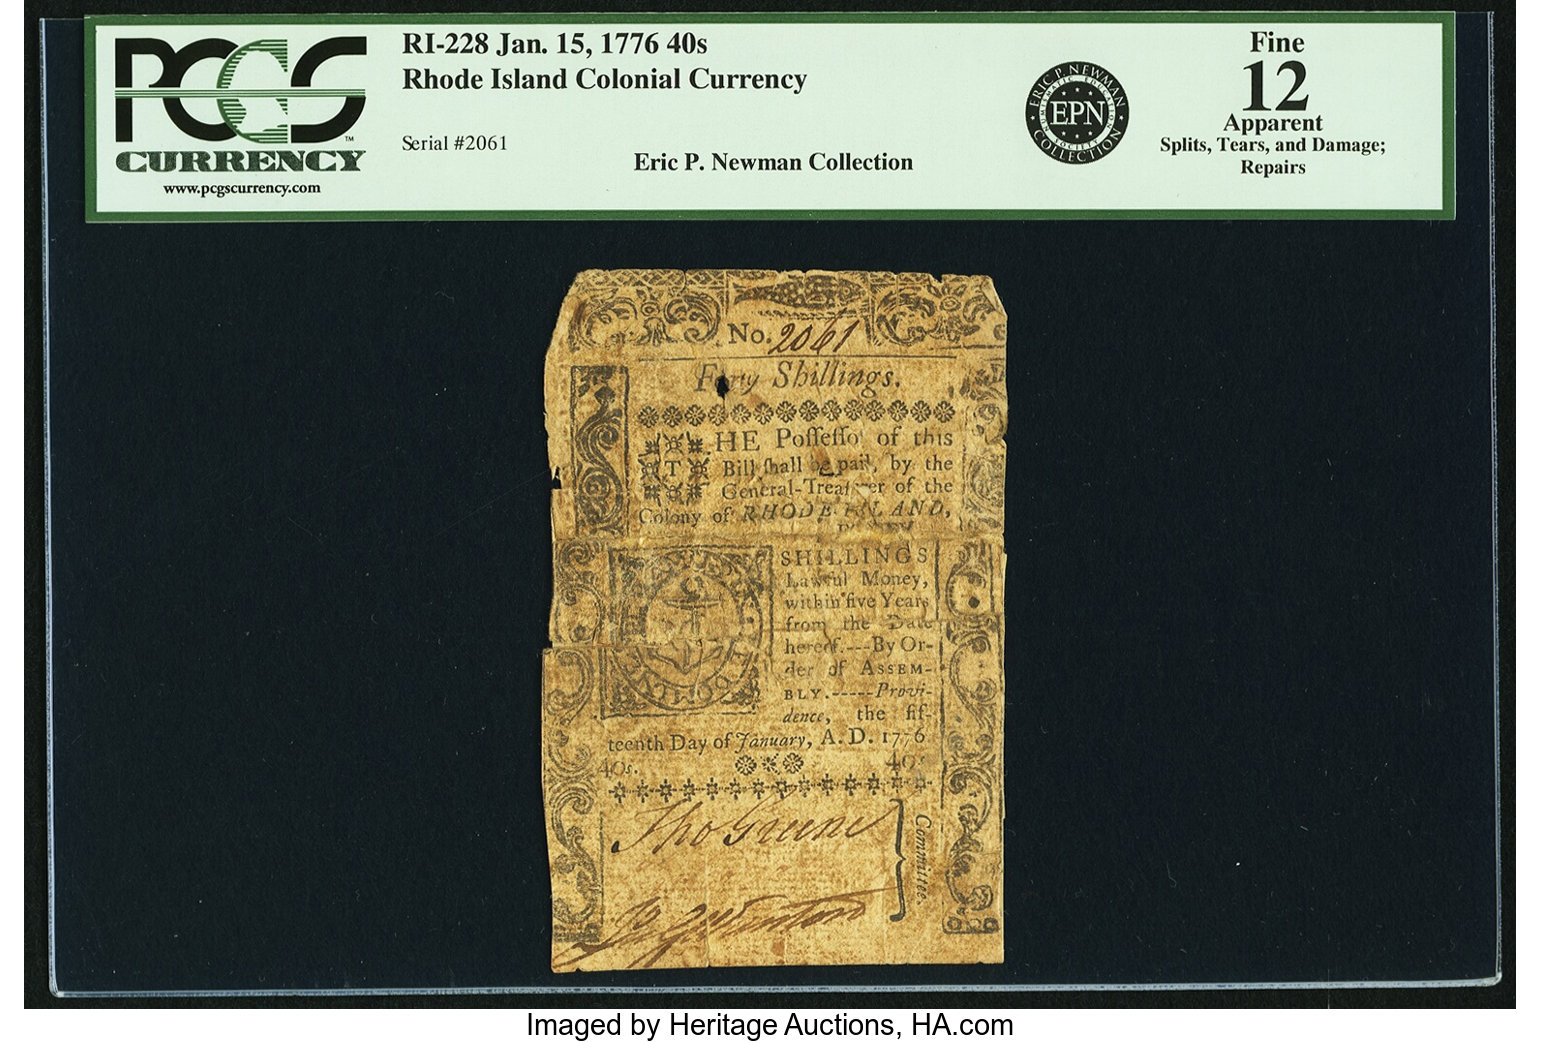 PCGS
CURRENCY
www.pcgscurrency.com
RI-228 Jan. 15, 1776 40s
Rhode Island Colonial Currency
Serial #2061
Eric P. Newman Collection
ERIC P. NEWMAN
NUMISMATIC EDUCATION
SOCIETY
EPN
COLLECTION
Fine
12
Apparent
Splits, Tears, and Damage;
Repairs
No. 2061
Forty Shillings.
THE Poſſeſſor of this
Bill ſhall be paid, by the
General-Treaſurer of the
Colony of RHODE-ISLAND,
SHILLINGS
Lawful Money,
within five Years
from the Date
hereof.---By Or-
der of ASSEM-
BLY.-----Provi-
dence, the fif-
teenth Day of January, A.D. 1776
40s. 40s.
Tho Greene
Committee.
Imaged by Heritage Auctions, HA.com